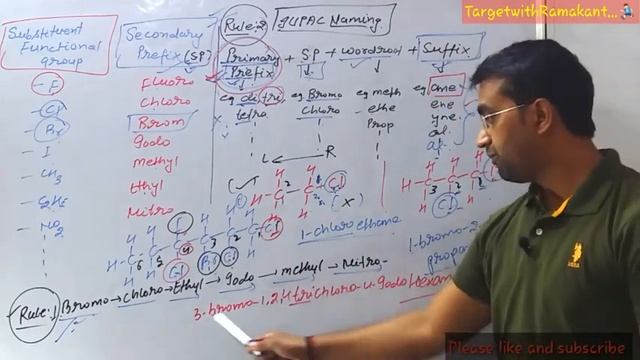 TargetwithRamakant...
Rule:2 IUPAC Naming
Substituent
Functional
group
Secondary
Prefix (SP)
Primary
Prefix + SP + wordroot + Suffix
- F
Fluoro
- Cl
Chloro
- Br
Brom
- I
Iodo
- CH3
Methyl
Ethyl
- NO2
Nitro
eg di, tri,
tetra
eg. Bromo
chloro
eg meth
- ethe
Prop
eg ane
ene
yne
ol
L ← R
(X)
1-chloroethane
1-bromo-2-
Rule:1 Bromo → chloro → Ethyl → Iodo → methyl → Nitro
3-bromo-1,2,4 trichloro-4-Iodo Hexan
Please like and subscribe